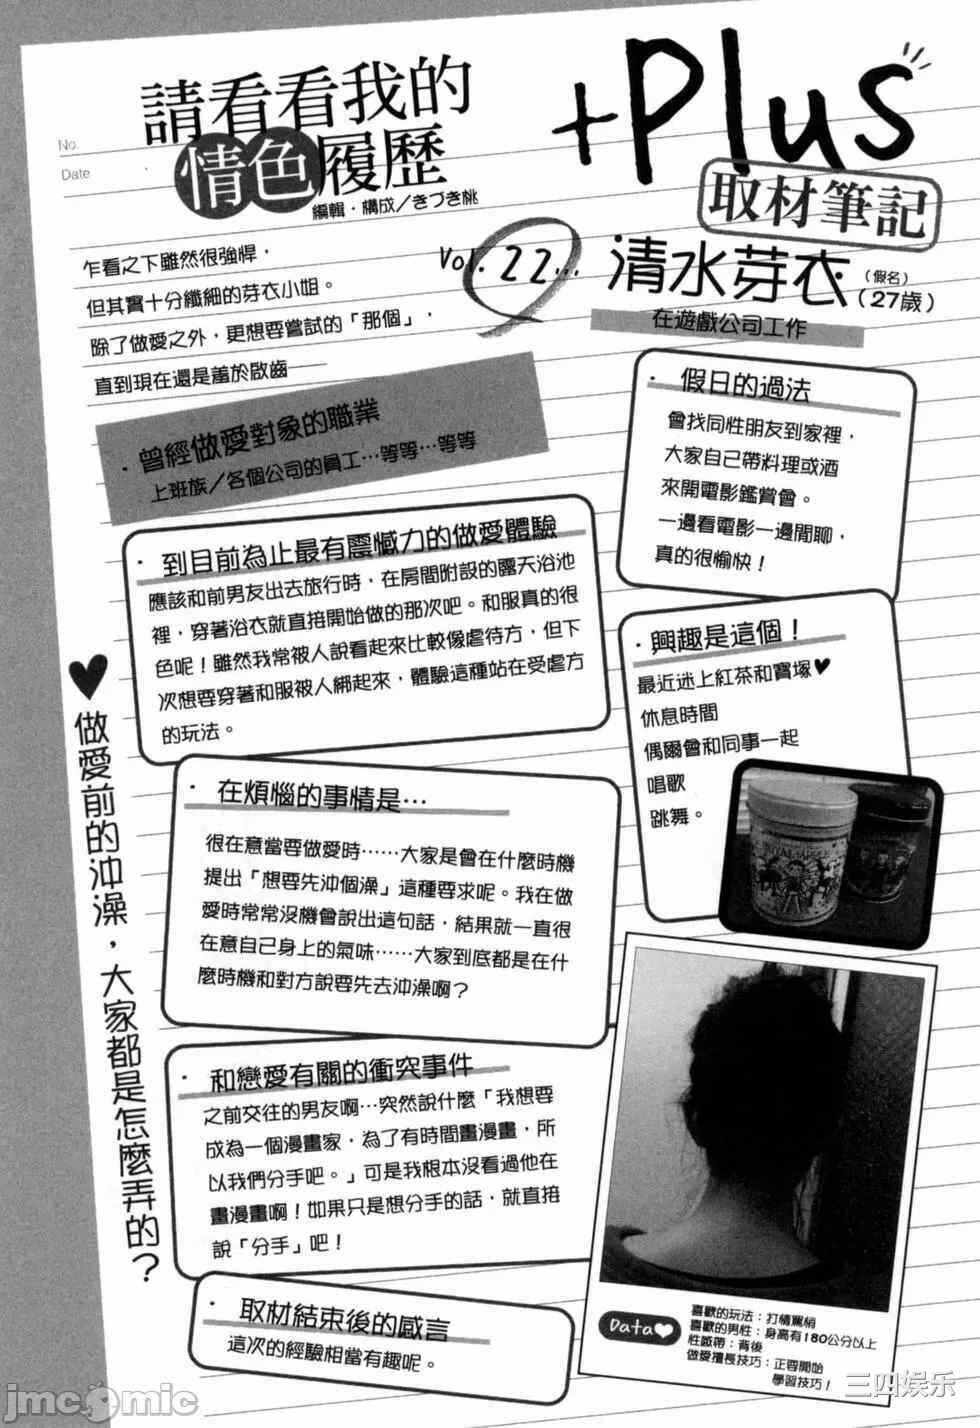 No.
Date
請看看我的
情色履歷
編輯・構成／きづき桃
+Plus
取材筆記
Vol.22...
清水芽衣(假名)
(27歲)
在遊戲公司工作
乍看之下雖然很強悍，
但其實十分纖細的芽衣小姐。
除了做愛之外，更想要嘗試的「那個」，
直到現在還是羞於啟齒——
・曾經做愛對象的職業
上班族／各個公司的員工…等等…等等
・到目前為止最有震憾力的做愛體驗
應該和前男友出去旅行時，在房間附設的露天浴池
裡，穿著浴衣就直接開始做的那次吧。和服真的很
色呢！雖然我常被人說看起來比較像虐待方，但下
次想要穿著和服被人綁起來，體驗這種站在受虐方
的玩法。
・在煩惱的事情是…
很在意當要做愛時……大家是會在什麼時機
提出「想要先沖個澡」這種要求呢。我在做
愛時常常沒機會說出這句話，結果就一直很
在意自己身上的氣味……大家到底都是在什
麼時機和對方說要先去沖澡啊？
・和戀愛有關的衝突事件
之前交往的男友啊…突然說什麼「我想要
成為一個漫畫家，為了有時間畫漫畫，所
以我們分手吧。」可是我根本沒看過他在
畫漫畫啊！如果只是想分手的話，就直接
說「分手」吧！
・取材結束後的感言
這次的經驗相當有趣呢。
♥做愛前的沖澡，大家都是怎麼弄的？
・假日的過法
會找同性朋友到家裡，
大家自己帶料理或酒
來開電影鑑賞會。
一邊看電影一邊閒聊，
真的很愉快！
・興趣是這個！
最近迷上紅茶和寶塚♥
休息時間
偶爾會和同事一起
唱歌
跳舞。
Data♥
喜歡的玩法：打情罵俏
喜歡的男性：身高有180公分以上
性感帶：背後
做愛擅長技巧：正要開始
學習技巧！
jmcomic
三四娱乐